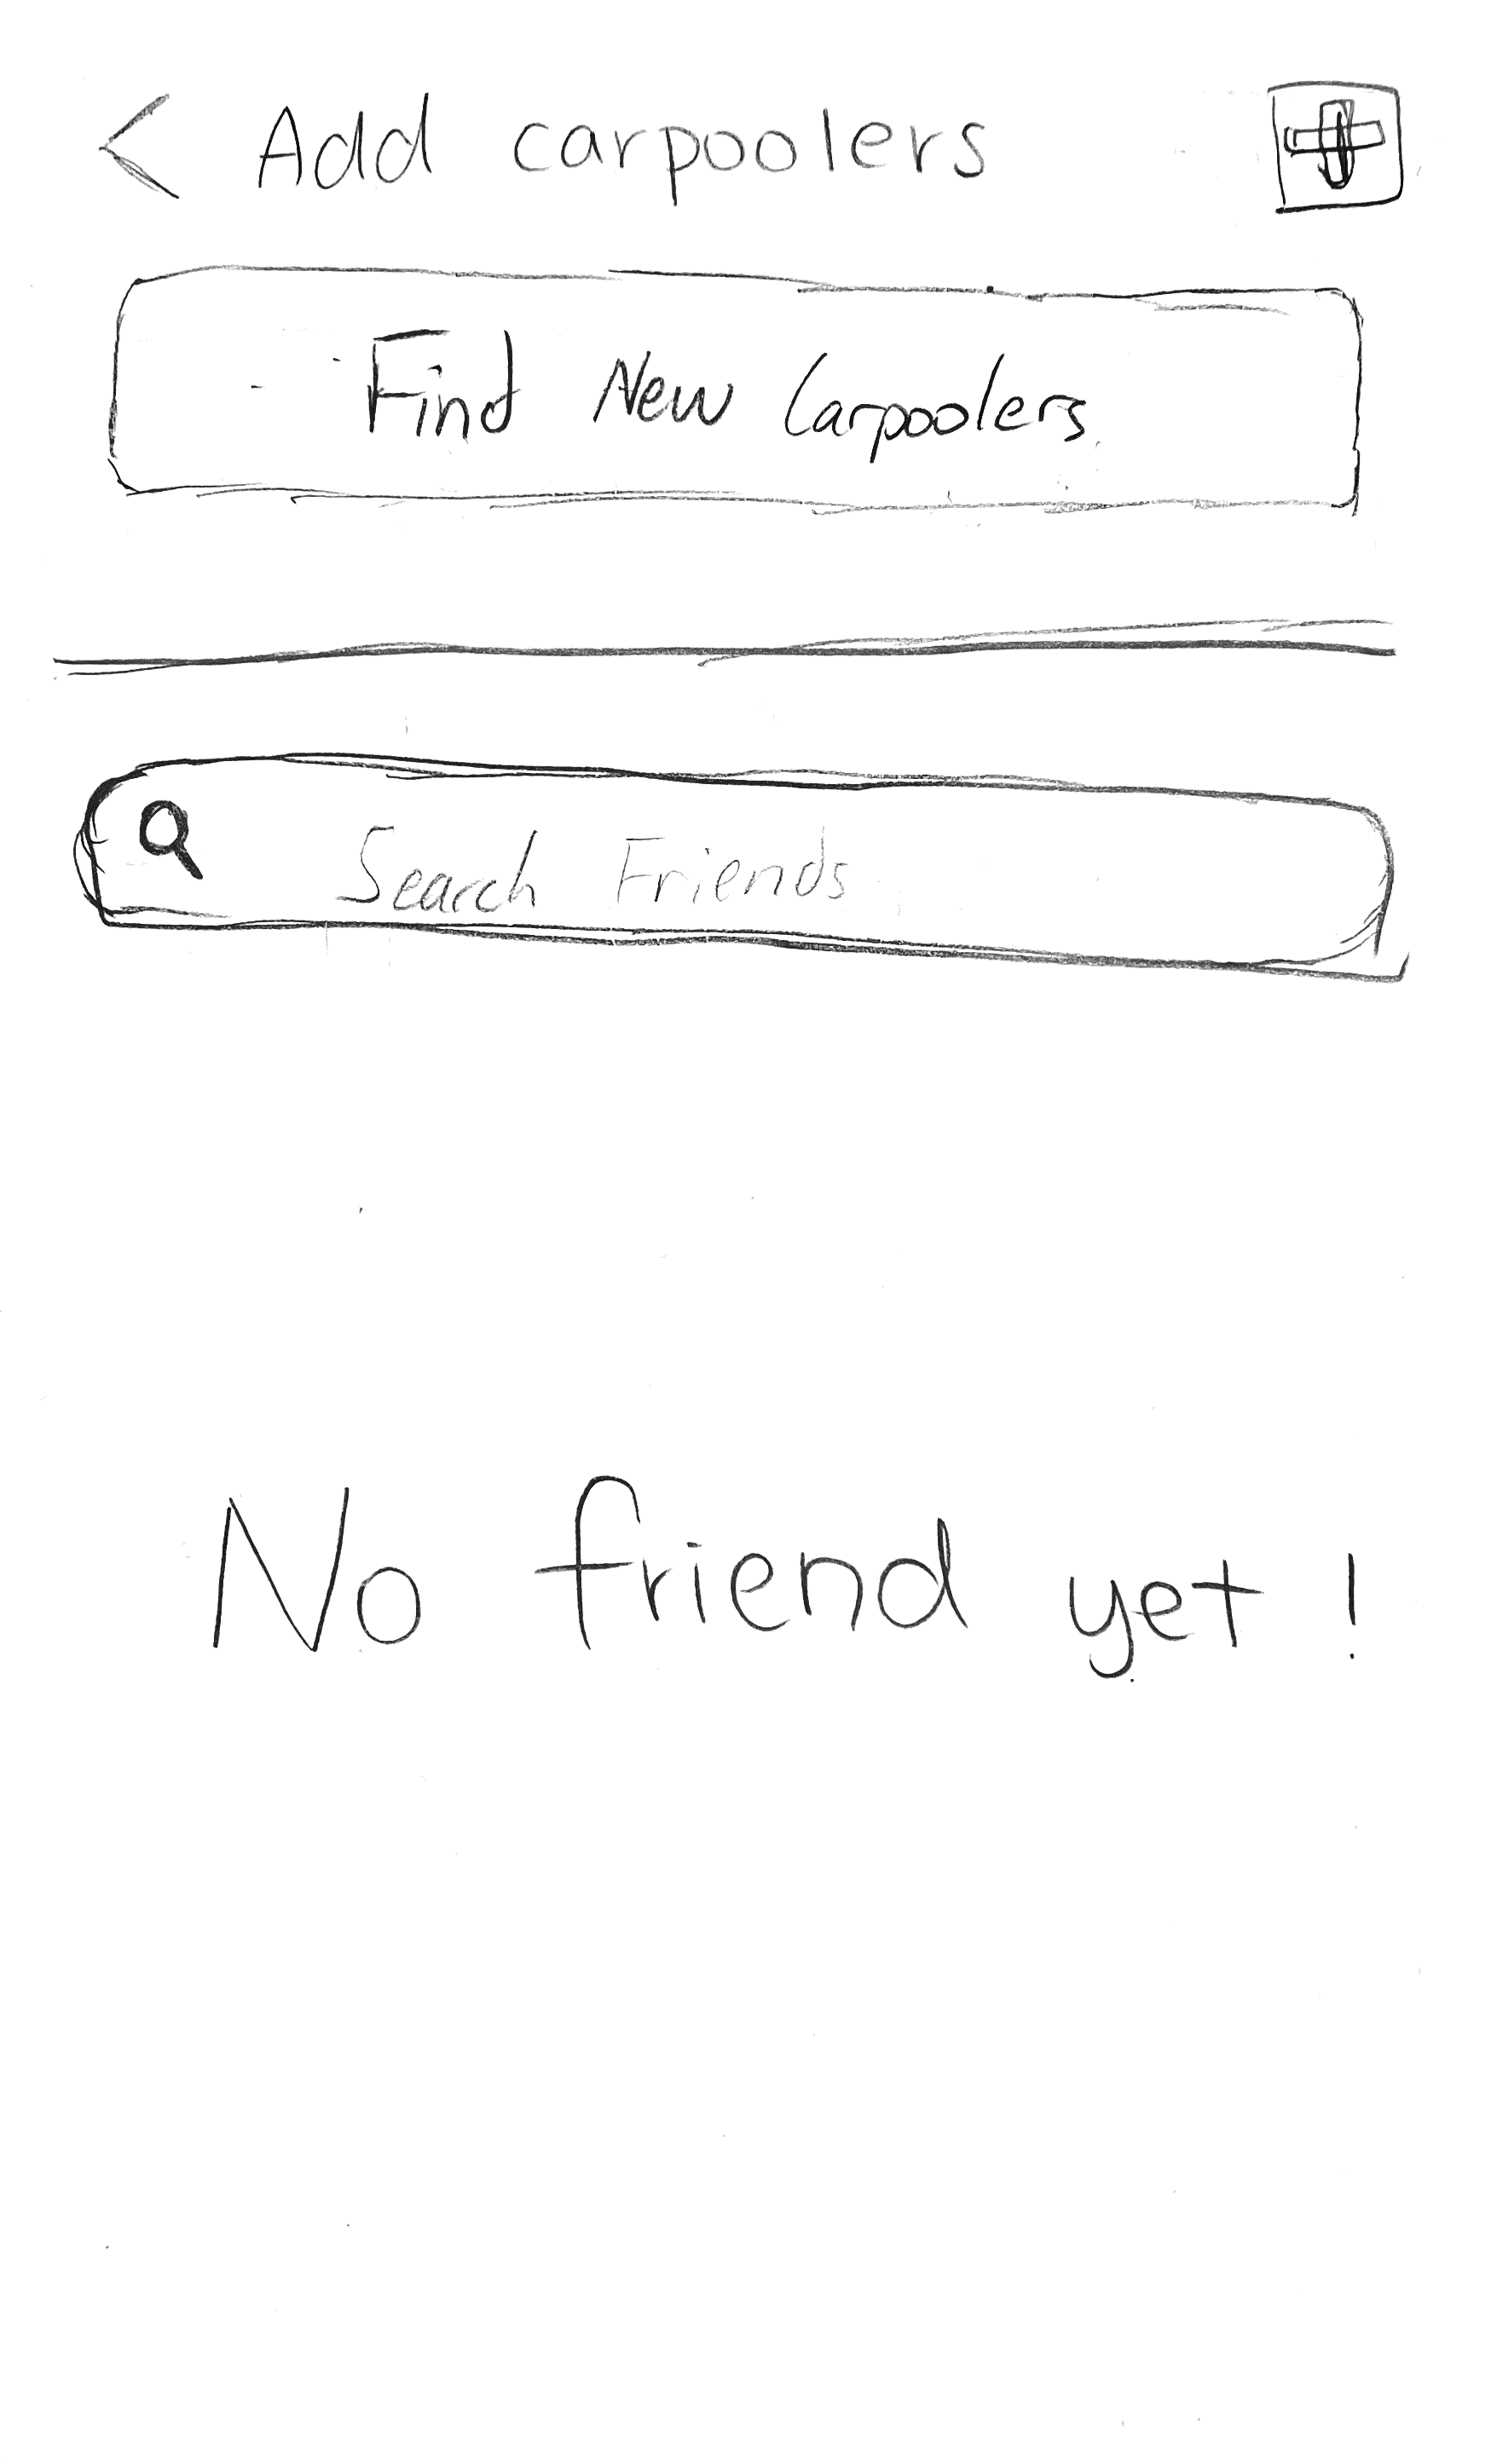 < Add carpoolers
Find New Carpoolers
Search Friends
No friend yet!